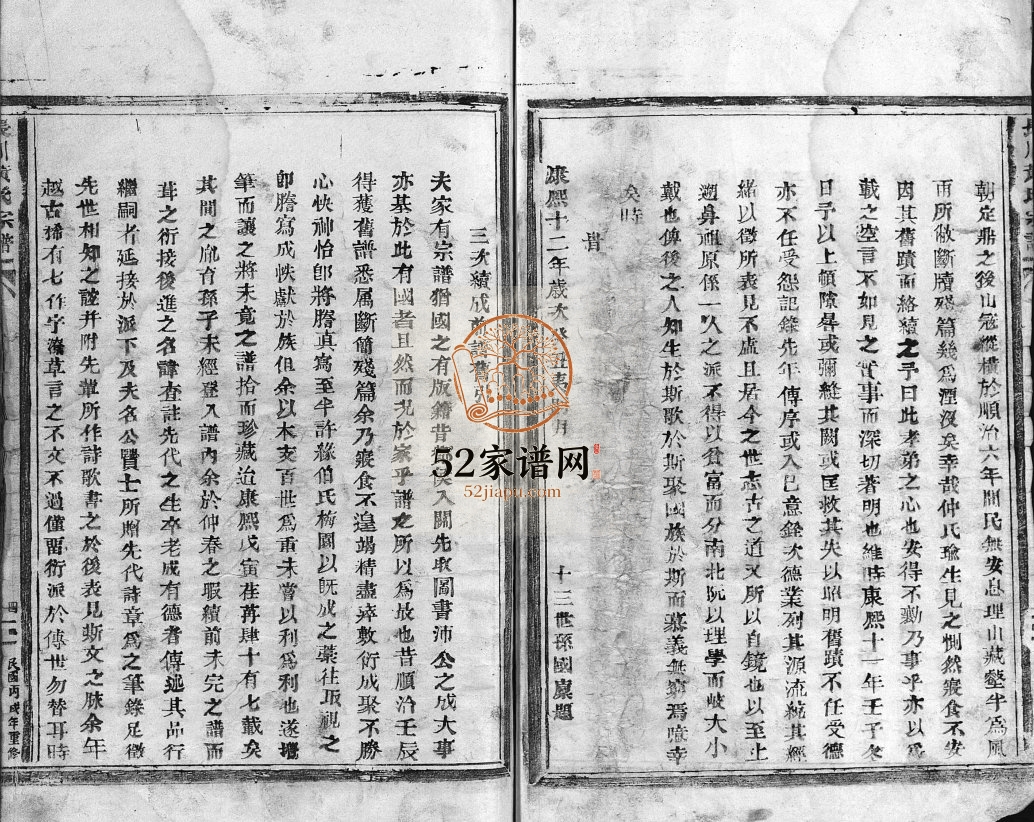 朝定鼎之後山寇縱橫於順治六年間民無安息理山藏壑半為風
雨所敝斷牘殘篇幾為湮沒矣幸哉仲氏瑜生見之惻然寢食不安
因其舊蹟而絡續之予曰此孝弟之心也安得不勷乃事乎亦以為
載之空言不如見之實事而深切著明也維時康熙十一年壬子冬
日予以上頓隙晷或彌縫其闕或匡救其失以昭明舊蹟不任受德
亦不任受怨記錄先年傳序或入己意銓次德業列其源流統其經
緒以徵所表見不虛且居今之世志古之道又所以自鏡也以至上
遡鼻祖原係一人之派不得以貧富而分南北阮以理學而岐大小
戴也俾後之人知生於斯歌於斯聚國族於斯而慕義無窮焉噫幸
矣時
昔
康熙十二年歲次癸丑夷 月
十三世孫國康題
三次續成 譜舊引
夫家有宗譜猶國之有版籍昔 侯入關先收圖書沛公之成大事
亦基於此有國者且然而况於家乎譜之所以為故也昔順治壬辰
得獲舊譜悉属斷簡殘篇余乃寢食不遑竭精盡瘁敷衍成聚不勝
心快神怡即將謄真寫至半許緣伯氏梅園以既成之藁往取視之
即謄寫成帙獻於族但余以木支百世為重未嘗以利為利也遂擱
筆而讓之將未竟之譜拾而珍藏迨康熙戊寅荏苒肆十有七載矣
其間之胤育孫子未經登入譜內余於仲春之暇續前未完之譜而
葺之衍接後進之名諱查註先代之生卒老成有德者傳述其品行
繼嗣者延接於派下及夫名公賢士所贈先代詩章為之筆錄足徵
先世相知之誼并附先輩所作詩歌書之於後表見斯文之脉余年
越古稀有七作字潦草言之不文不過僅畱衍派於傳世勿替耳時
宗譜
四
民國丙戌年重修
52家谱网
52jiapu.com